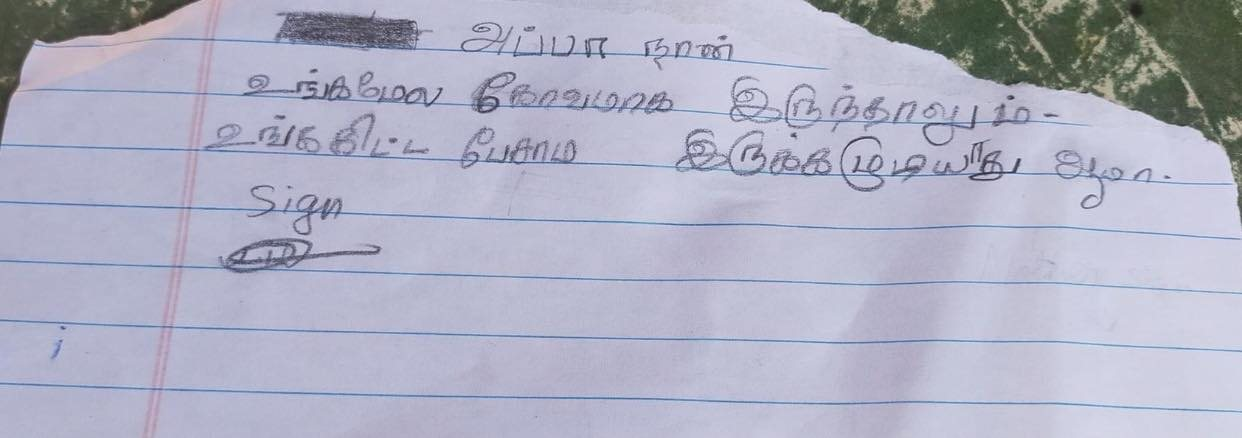 அப்பா நான்
உங்கமேல கோவமாக இருந்தாலும் -
உங்ககிட்ட பேசாம இருக்க முடியாது ஆமா.
Sign
i